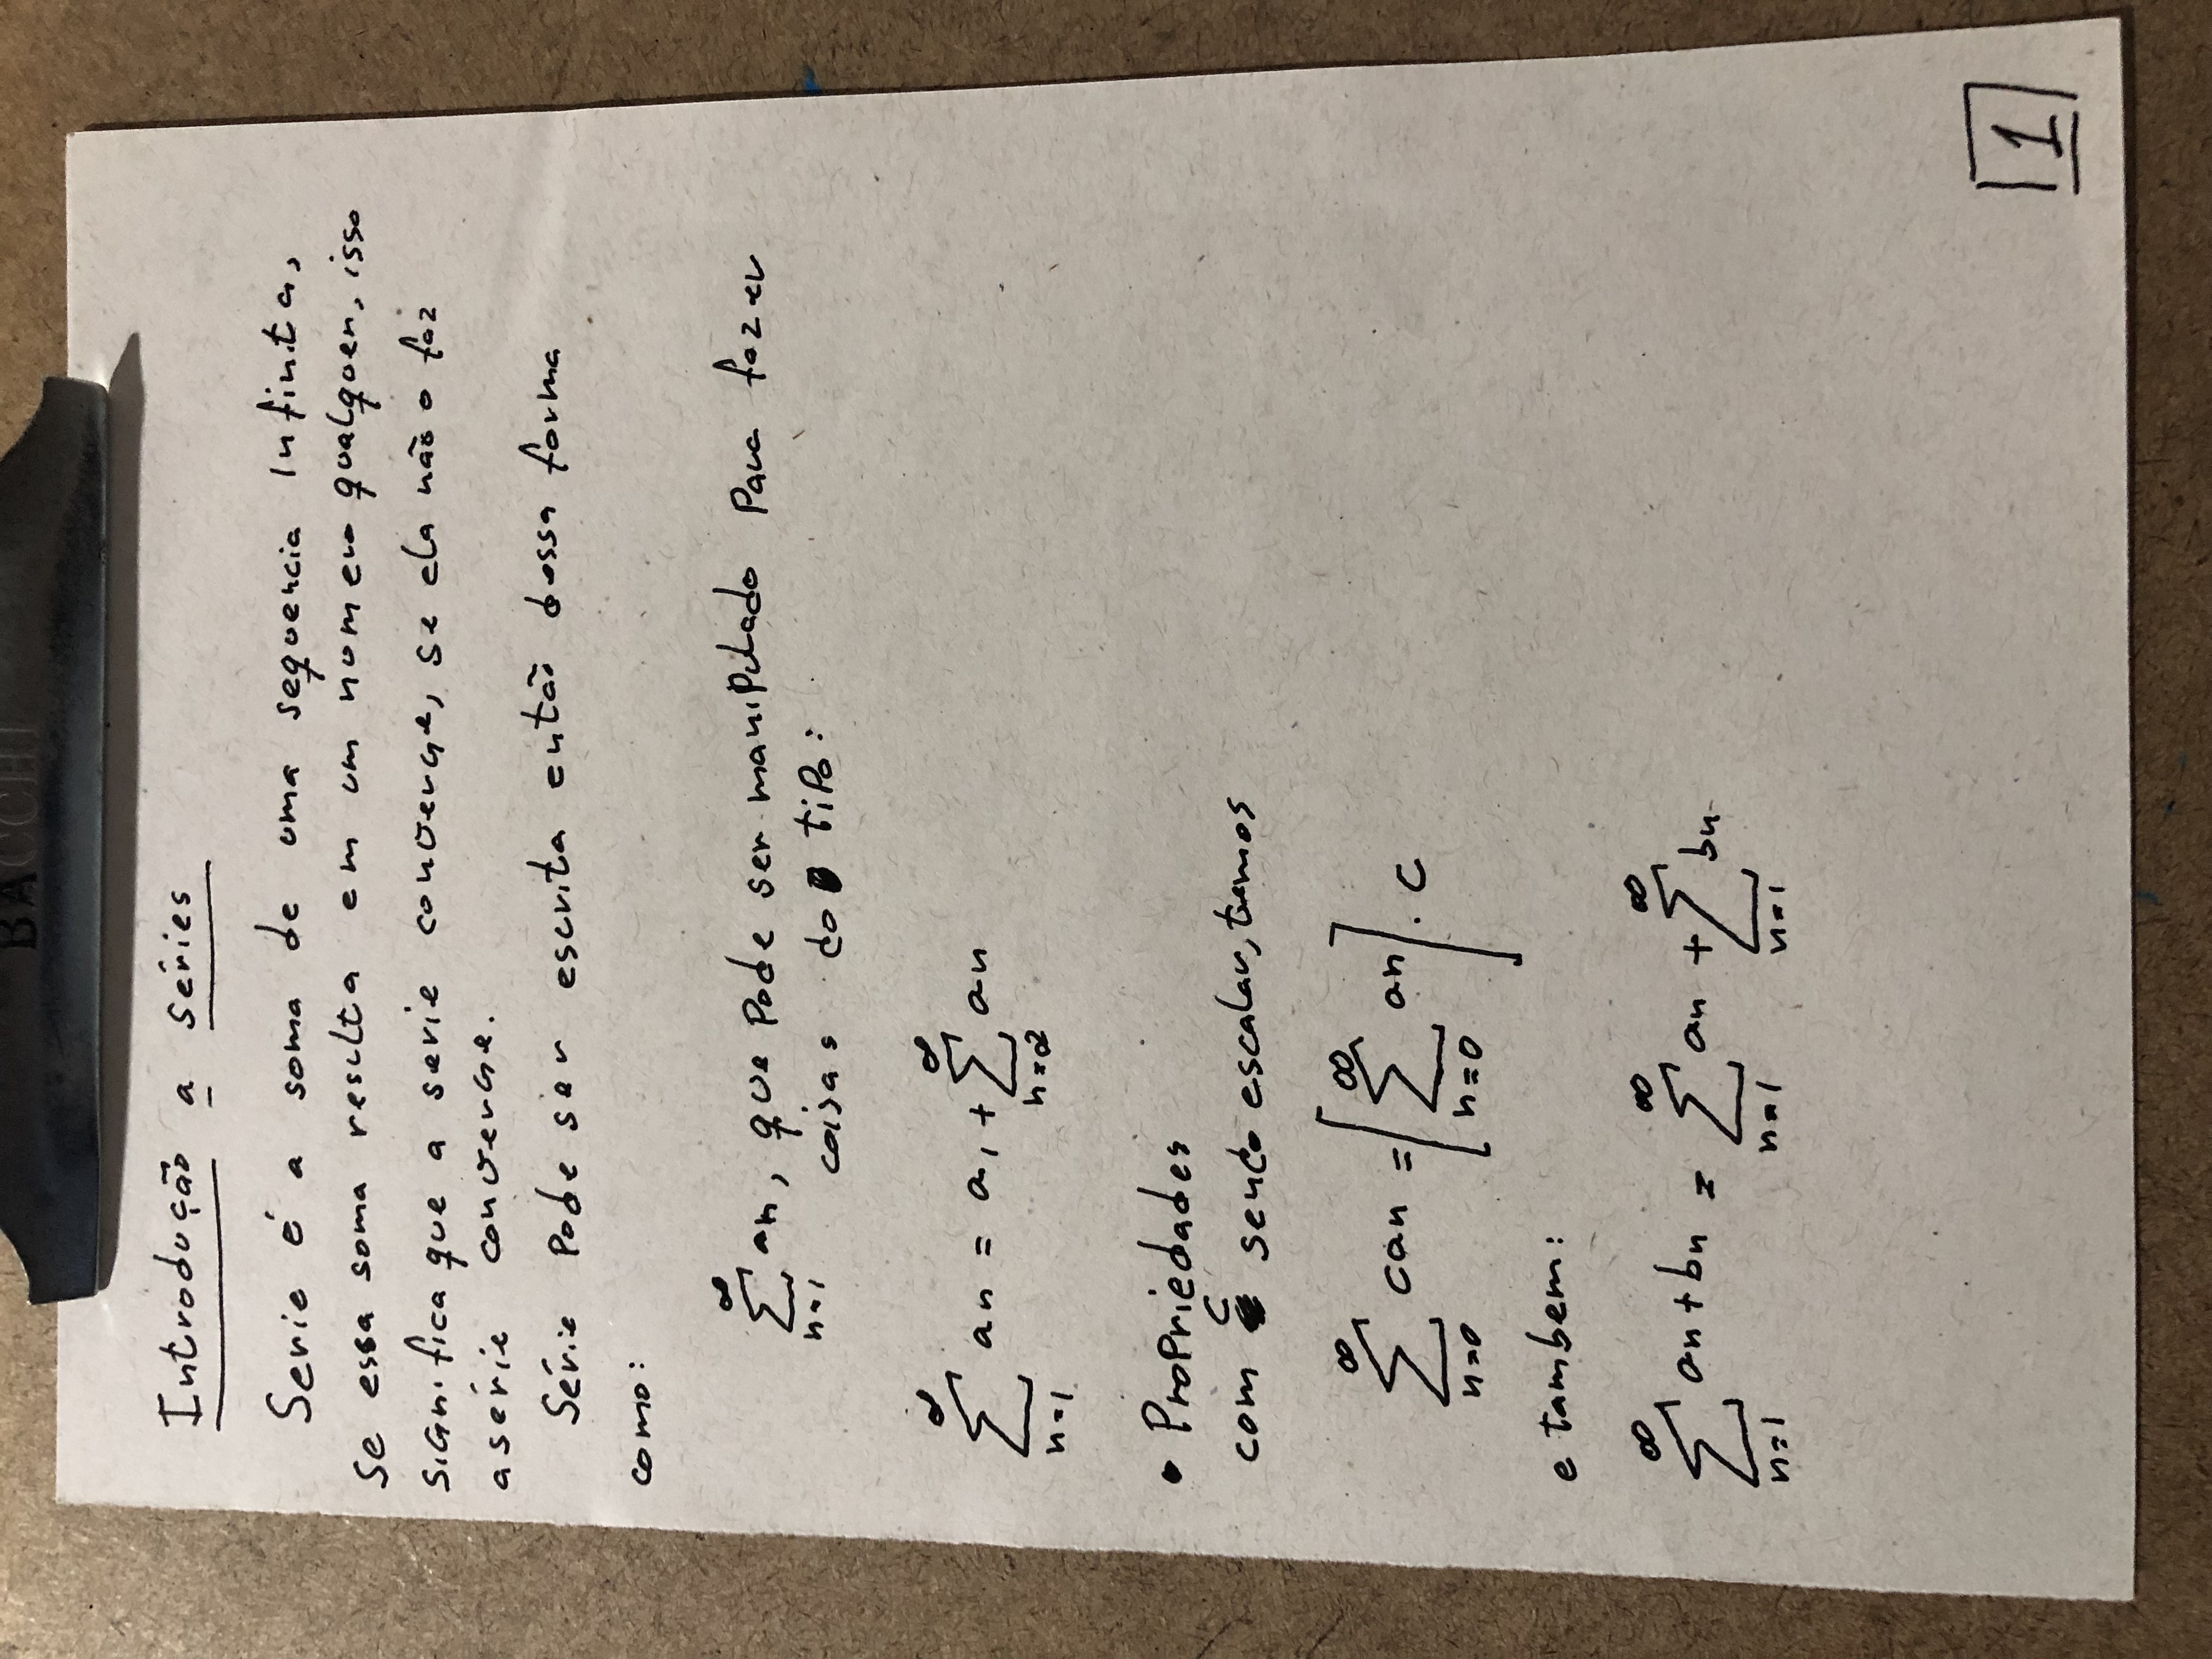 BACCHI
Introdução a séries
Serie é a soma de uma sequencia Infinita,
se essa soma resulta em um numero qualquer, isso
significa que a serie converge, se ela não o faz
a série converge.
Série Pode ser escrita então dessa forma
como:
∞
∑ an, que Pode ser manipulado Para fazer
n=1 coisas do tipo:
∞ ∞
∑ an = a₁ + ∑ an
n=1 n=2
• Propriedades
com c sendo escalar, temos
∞ ∞
∑ can = [∑ an] . c
n=0 n=0
e tambem:
∞ ∞ ∞
∑ an+bn = ∑ an + ∑ bn
n=1 n=1 n=1
1